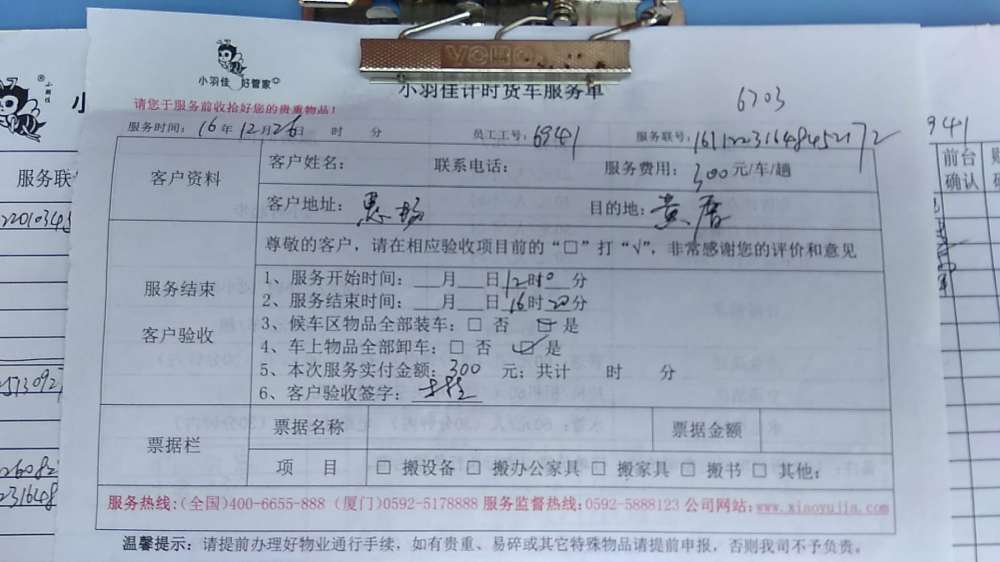 VOBO
小羽佳 好管家
小羽佳计时货车服务单
6703
请您于服务前收拾好您的贵重物品!
服务时间: 16年12月26日 时 分 员工工号: 6941 服务联号: 16112231648452172
客户资料
客户姓名: 联系电话: 服务费用: 300元/车/趟
客户地址: 目的地:
尊敬的客户,请在相应验收项目前的“□”打“√”,非常感谢您的评价和意见
服务结束
客户验收
1、服务开始时间: ___月___日12时10分
2、服务结束时间: ___月___日16时20分
3、候车区物品全部装车: □ 否 □ 是
4、车上物品全部卸车: □ 否 □ 是
5、本次服务实付金额: 300 元; 共计 时 分
6、客户验收签字:
票据栏
票据名称 票据金额
项 目 □ 搬设备 □ 搬办公家具 □ 搬家具 □ 搬书 □ 其他:
服务热线:(全国)400-6655-888 (厦门)0592-5178888 服务监督热线:0592-5888123 公司网站:www.xiaoyujia.com
温馨提示: 请提前办理好物业通行手续,如有贵重、易碎或其它特殊物品请提前申报,否则我司不予负责。
小羽佳
服务联
941
前台
确认